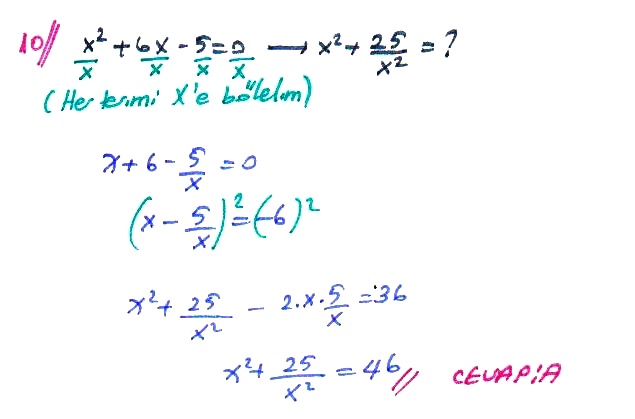 10// x²/x + 6x/x - 5/x = 0/x → x² + 25/x² = ?
(Her terimi X'e bölelim)
x + 6 - 5/x = 0
(x - 5/x)² = (-6)²
x² + 25/x² - 2.x.5/x = 36
x² + 25/x² = 46// CEVAP:A